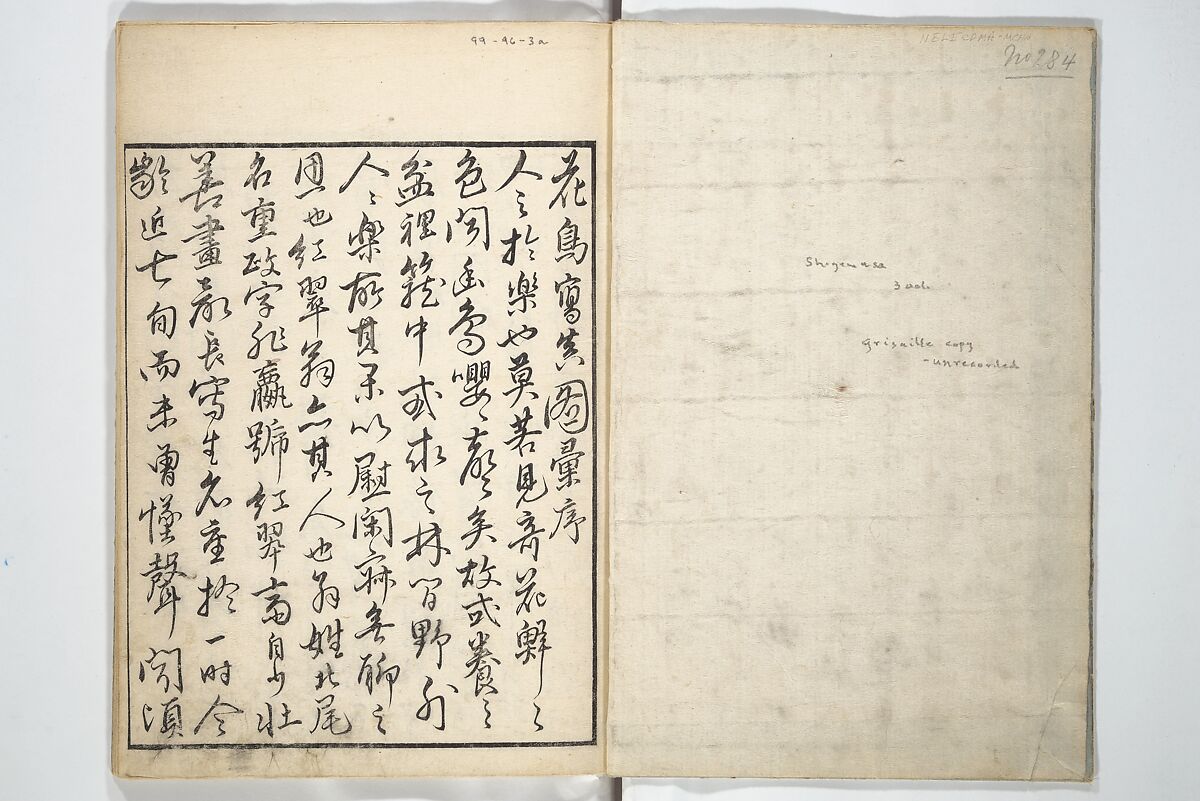 99-96-3a
no 284
Shigemasa
3 vol.
grisaille copy
- unrecorded
花鳥寫真圖彙序
人之於樂也莫若見奇花鮮〻
色聞幽鳥嚶〻聲矣故或養之
盆裡籠中或求之林間野外
人〻樂所其不以慰閑寂無聊之
思也紅翠翁亦其人也翁姓北尾
名重政字非羸號紅翠齋自少壯
善畫最長寫生名重於一時今
齡近七旬而未曾懂聲聞頃